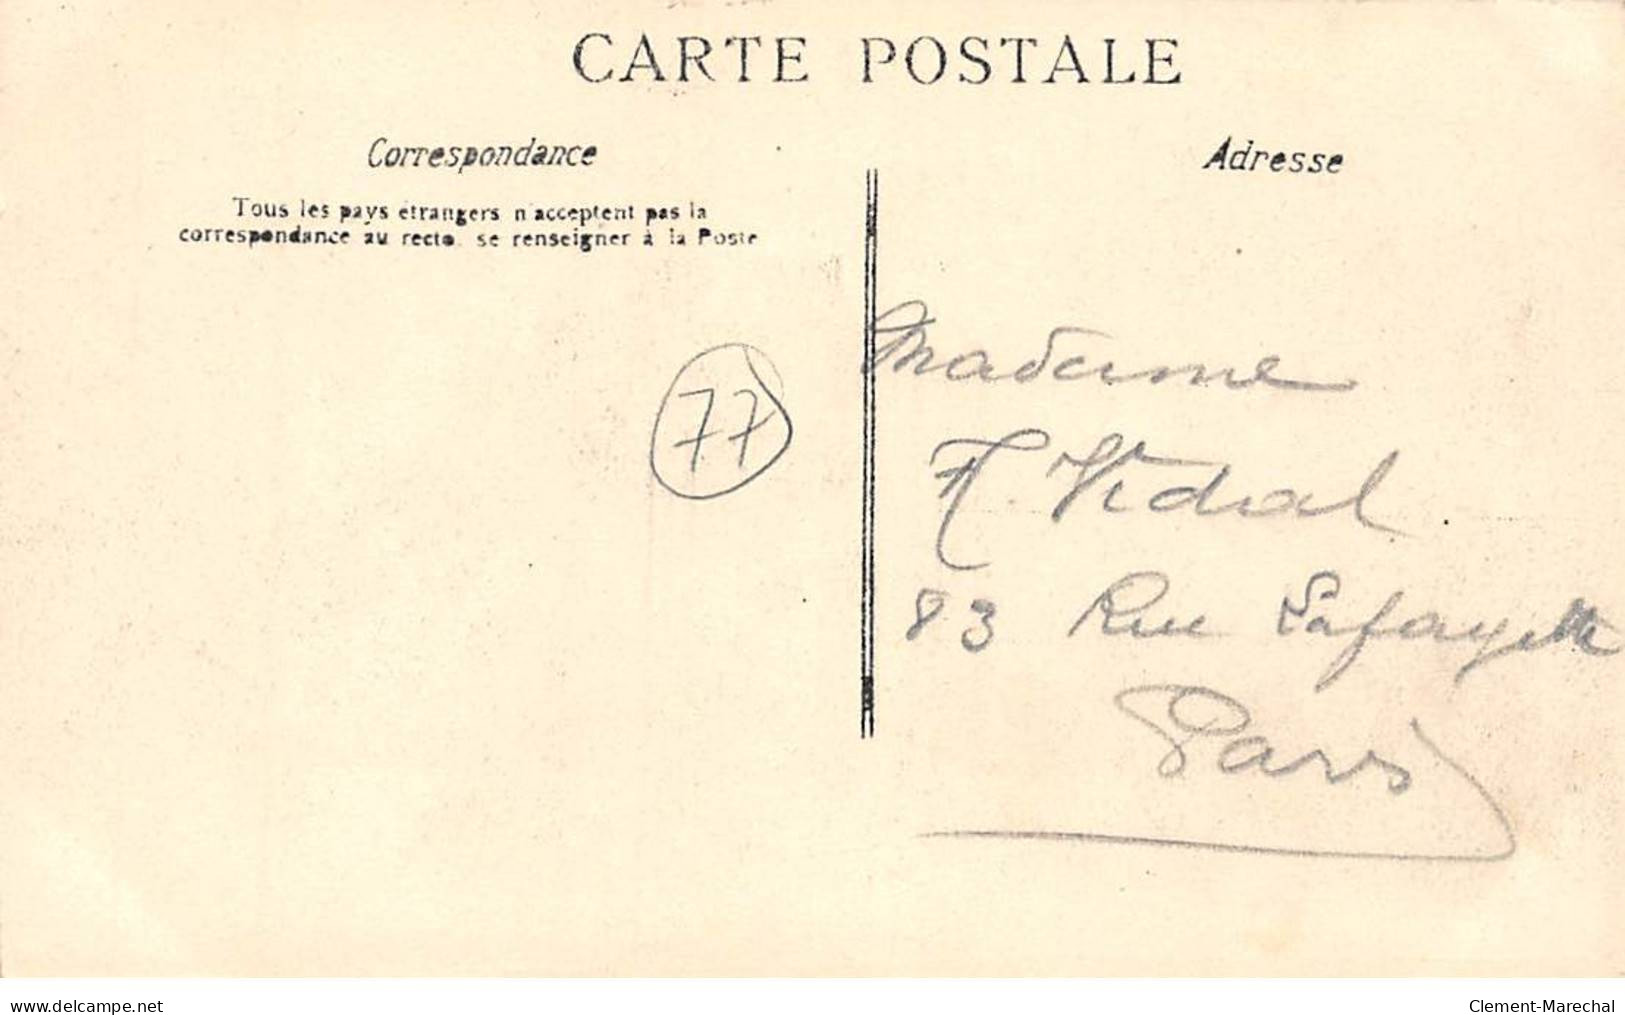 CARTE POSTALE
Correspondance
Tous les pays étrangers n'acceptent pas la
correspondance au recto, se renseigner à la Poste
77
Adresse
Madame
Vidal
83 Rue Lafayette
Paris
delcampe.net
Clement-Marechal